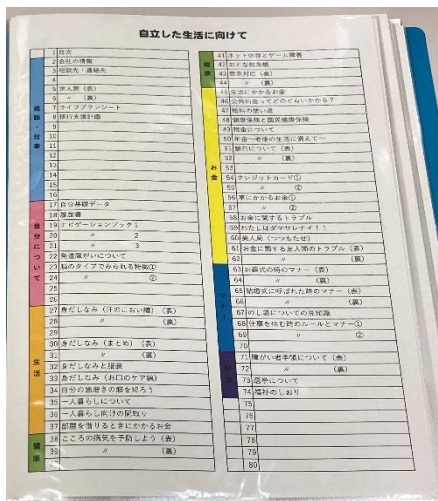 自立した生活に向けて
1 目次
2 会社の情報
3 相談先・連絡先
4
5 求人票（表）
6 〃（裏）
7 ライフプランシート
8 移行支援計画
9
10
11
12
13
14
15
16
進路・仕事
17 自分基礎データ
18 履歴書
19 ナビゲーションブック 1
20 〃 2
21 〃 3
22 発達障がいについて
23 脳のタイプでみられる特徴①
24 〃 ②
25
26
自分について
27 身だしなみ（汗のにおい 編）（表）
28 〃（裏）
29
30 身だしなみ（まとめ）（表）
31 〃（裏）
32 身だしなみと服装
33 身だしなみ（お口のケア編）
34 自分の歯磨きの癖を知ろう
35 一人暮らしについて
36 一人暮らし向けの間取り
37 部屋を借りるときにかかるお金
生活
38 こころの病気を予防しよう（表）
39 〃（裏）
健康
41 ネット依存とゲーム障害
42 おとな救急帳
43 救急対応（表）
44 〃（裏）
健康
45 生活にかかるお金
46 公共料金ってどのぐらいかかる？
47 給料の使い道
48 健康保険と国民健康保険
49 税金について
50 年金～老後の生活に備えて～
51 銀行について（表）
52 〃（裏）
53
54 クレジットカード①
55 〃 ②
56 車にかかるお金①
57 〃 ②
58 お金に関するトラブル
59 わたしはダマサレナイ！！
60 美人局（つつもたせ）
61 お金に関する友人間のトラブル（表）
62 〃（裏）
お金
63 お葬式の時のマナー（表）
64 〃（裏）
65 結婚式に呼ばれた時のマナー（表）
66 〃（裏）
67 のし袋についての豆知識
68 仕事を休む時のルールとマナー①
69 〃 ②
70
71 障がい者手帳について（表）
72 〃（裏）
73 選挙について
74 福祉のしおり
75
76
77
78
79
80